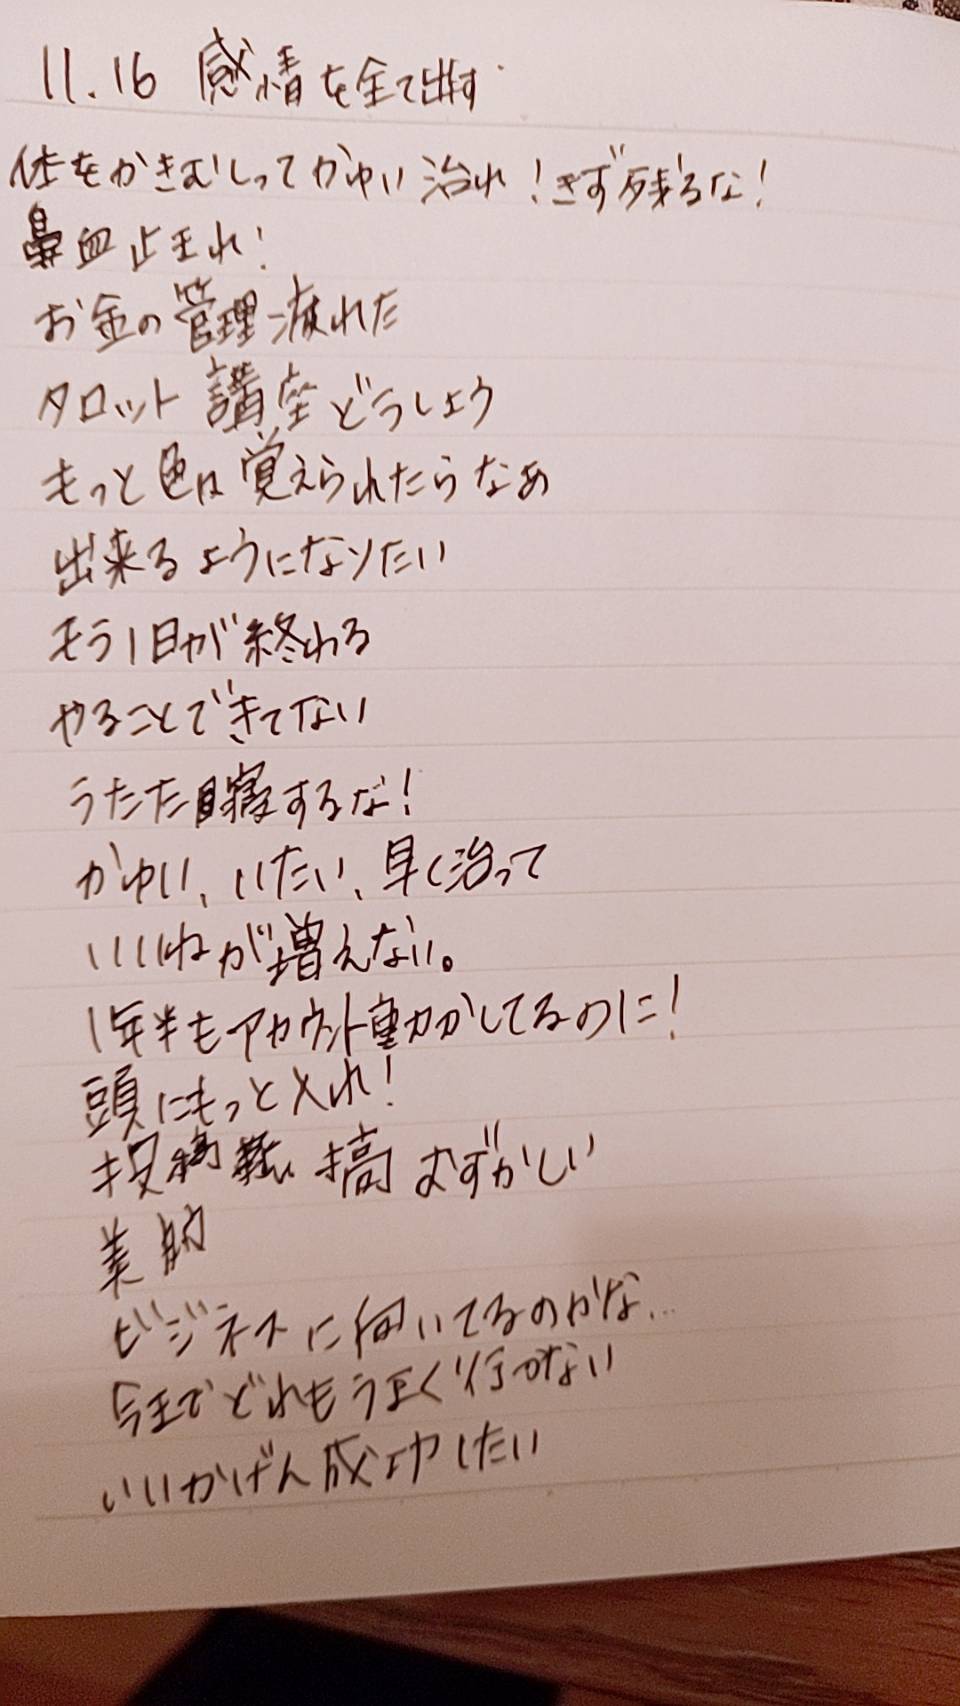 11.16 感情を全て出す
体をかきむしってかゆい 治れ!きず残るな!
鼻血止まれ!
お金の管理疲れた
タロット 講座どうしよう
もっと色は覚えられたらなあ
出来るようになりたい
もう1日が終わる
やることできてない
うたた寝するな!
かゆい、いたい、早く治って
いいねが増えない。
1年半もアカウント動かしてるのに!
頭にもっと入れ!
投稿 むずかしい
美肌
ビジネスに向いてるのかな...
今までどれもうまく行かない
いいかげん成功したい